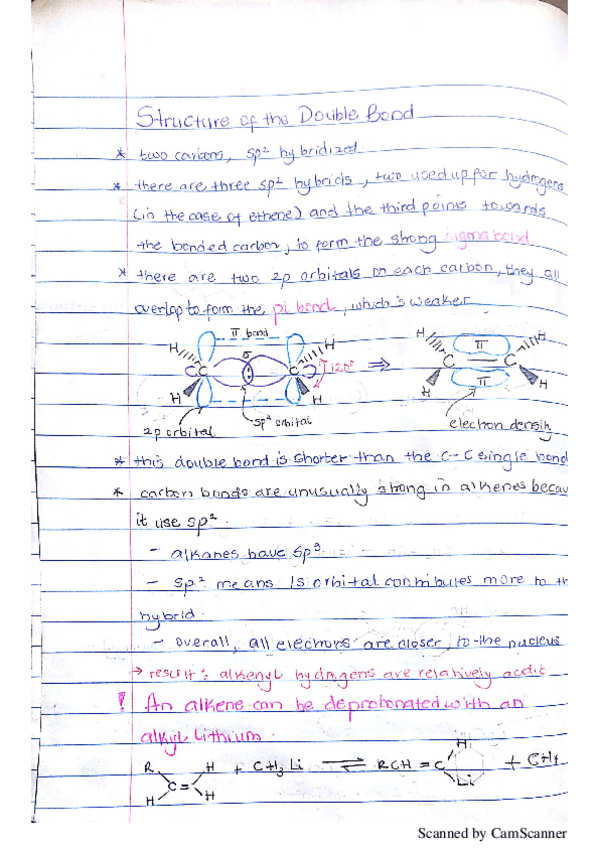 Structure of the Double Bond
* two carbons, sp² hybridized
* there are three sp² hybrids, two used up for hydrogens
(in the case of ethene) and the third points towards
the bonded carbon, to form the strong sigma bond
* there are two 2p orbitals on each carbon, they all
overlap to form the pi bond, which is weaker
π bond
H H H H
σ π
C C 120° ⇒ C C
H H π H H
2p orbital sp² orbital electron density
* this double bond is shorter than the C-C single bond
* carbon bonds are unusually strong in alkenes becau
it use sp².
- alkanes have sp³
- sp² means 1s orbital contributes more to th
hybrid.
- overall, all electrons are closer, to the nucleus
→ result: alkenyl hydrogens are relatively acidic
! An alkene can be deprotonated with an
alkyl lithium.
R H + CH₃Li ⇌ RCH=C H + CH₄
C=C Li
H H
Scanned by CamScanner